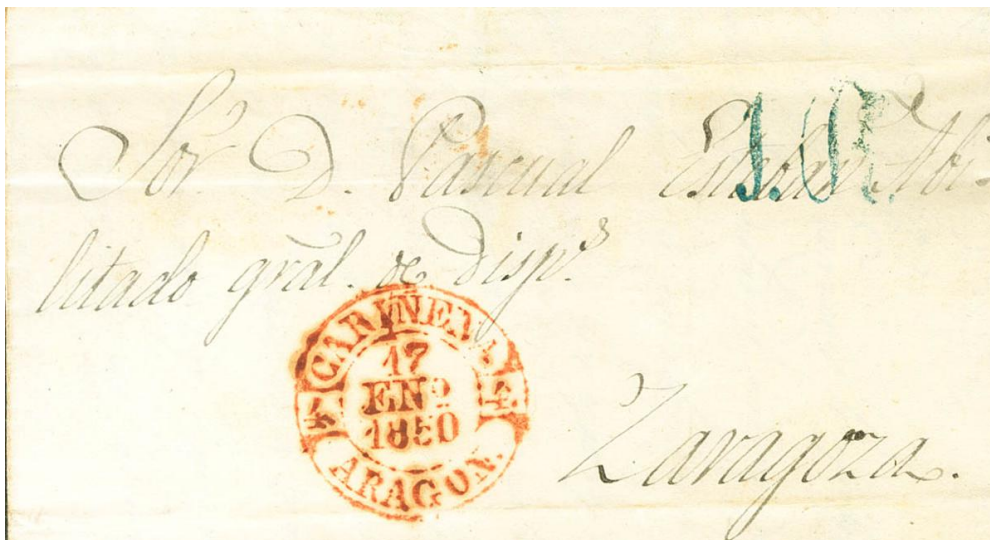 Sor. D. Pascual Esteban Abi-
litado gral. de Disp.s
1R.
CARIÑENA
17
ENº
1850
ARAGON.
Zaragoza.